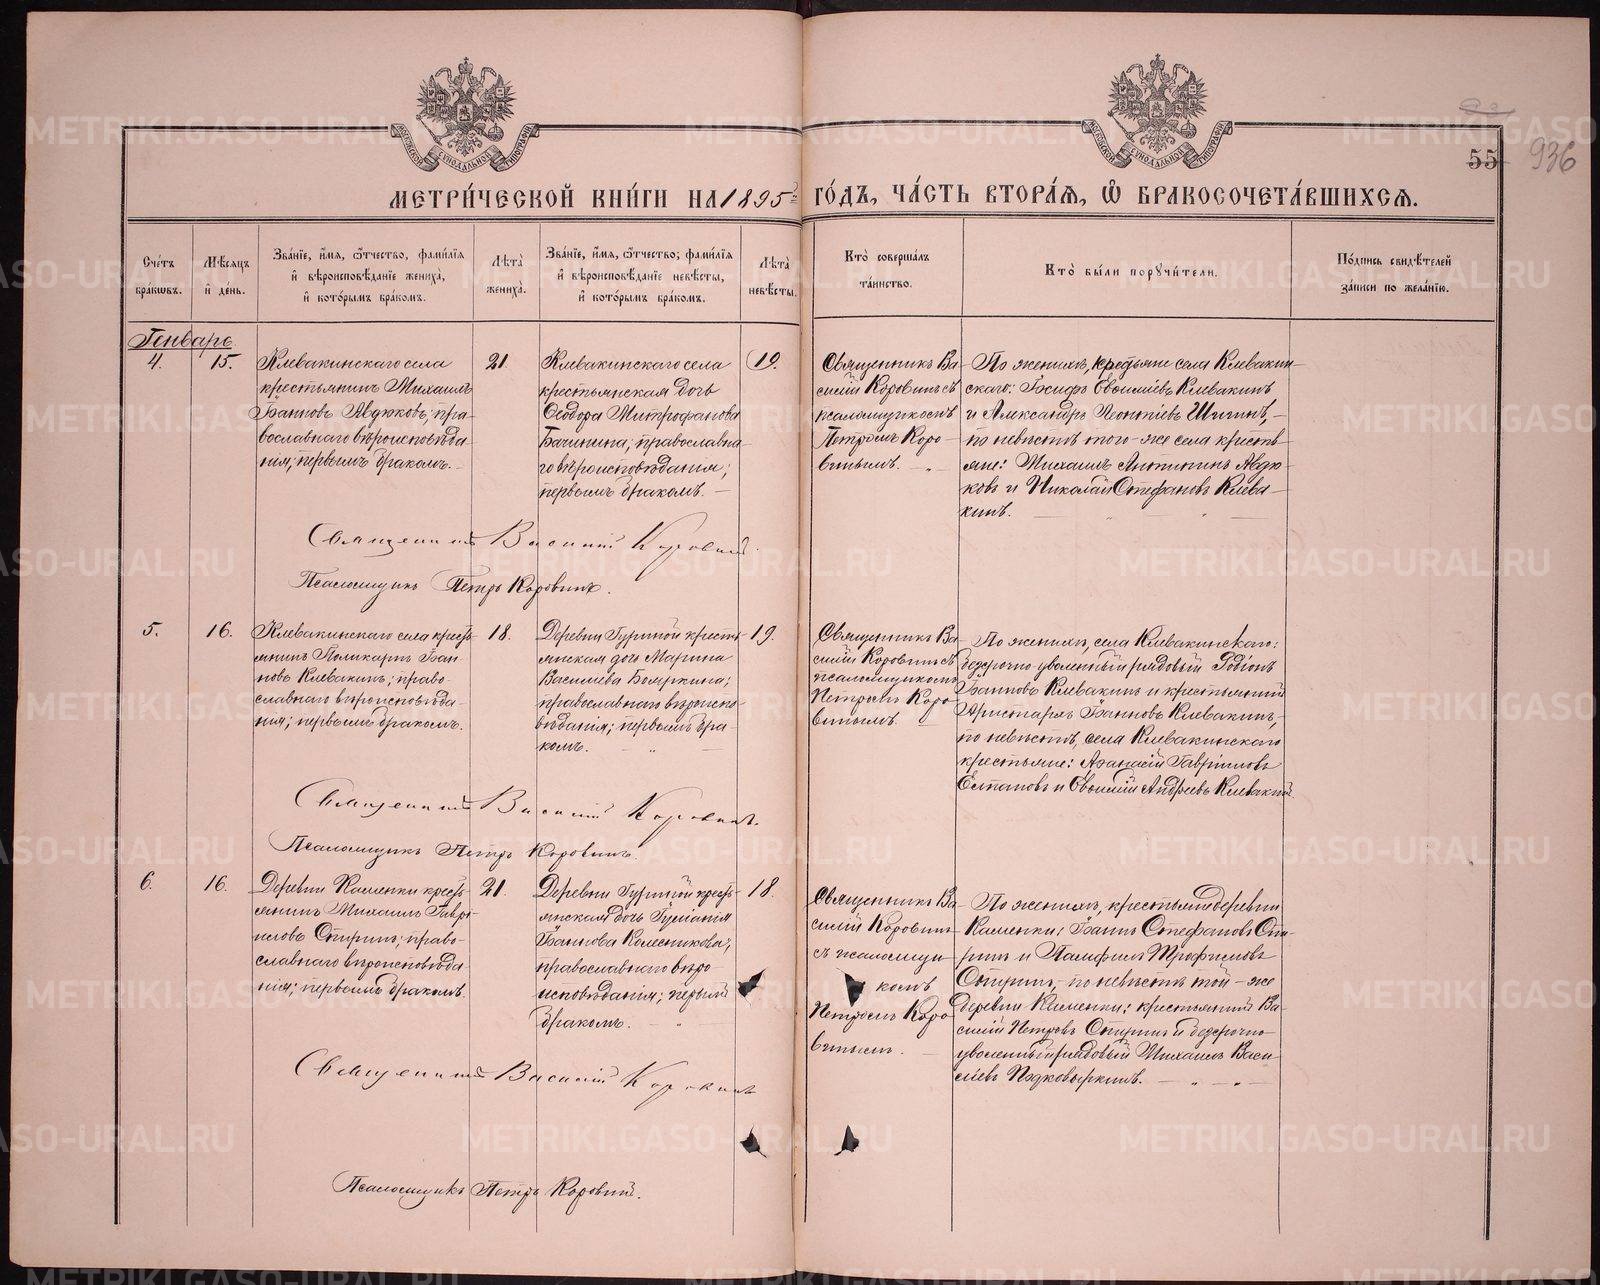 МОСКОВСКОЙ СѴНОДАЛЬНОЙ ТИПОГРАФІИ
МОСКОВСКОЙ СѴНОДАЛЬНОЙ ТИПОГРАФІИ
55 936
МЕТРИ́ЧЕСКОЙ КНИ́ГИ НА 1895 ГО́ДЪ, ЧА́СТЬ ВТОРА́Я, Ѽ БРАКОСОЧЕТА́ВШИХСЯ.
Сче́тъ
бра́кѡвъ.
Мѣ́сяцъ
и҆ де́нь.
Зва́нїе, и҆́мя, ѻ҆́тчество, фами́лїя
и҆ вѣроисповѣ́данїе жениха̀,
и҆ кото́рымъ бра́комъ.
Лѣта̀
жениха̀.
Зва́нїе, и҆́мя, ѻ҆́тчество, фами́лїя
и҆ вѣроисповѣ́данїе невѣ́сты,
и҆ кото́рымъ бра́комъ.
Лѣта̀
невѣ́сты.
Кто̀ соверша́лъ
та́инство.
Кто̀ бы́ли порꙋчи́тели.
По́дпись свидѣ́телей
за́писи по жела́нїю.
Генварь
4.
15.
Клевакинскаго села
крестьянинъ Михаилъ
Іоанновъ Авдюковъ; пра-
вославнаго вѣроисповѣда-
нія; первымъ бракомъ.
21.
Клевакинскаго села
крестьянская дочь
Ѳеодора Митрофанова
Бачинина; православна-
го вѣроисповѣданія;
первымъ бракомъ.
19.
Священникъ Ва-
силій Коровинъ съ
псаломщикомъ
Петромъ Коро-
винымъ.
По женихѣ, крестьяне села Клевакин-
скаго: Іосифъ Евѳиміевъ Клевакинъ
и Александръ Леонтіевъ Шигинъ,
по невѣстѣ того-же села кресть-
яне: Михаилъ Антипинъ Авдю-
ковъ и Николай Стефановъ Клева-
кинъ.
Священникъ Василій Коровинъ.
Псаломщикъ Петръ Коровинъ.
5.
16.
Клевакинскаго села кресть-
янинъ Поликарпъ Іоан-
новъ Клевакинъ; право-
славнаго вѣроисповѣда-
нія; первымъ бракомъ.
18.
Деревни Гуриной кресть-
янская дочь Марина
Василіева Бояркина;
православнаго вѣроиспо-
вѣданія; первымъ бра-
комъ.
19.
Священникъ Ва-
силій Коровинъ съ
псаломщикомъ
Петромъ Коро-
винымъ.
По женихѣ, села Клевакинскаго:
безсрочно-уволенный рядовый Родіонъ
Іоанновъ Клевакинъ и крестьянинъ
Аристархъ Іоанновъ Клевакинъ,
по невѣстѣ, села Клевакинскаго
крестьяне: Аѳанасій Гавріиловъ
Елпановъ и Евѳимій Андреевъ Клевакинъ.
Священникъ Василій Коровинъ.
Псаломщикъ Петръ Коровинъ.
6.
16.
Деревни Каменки кресть-
янинъ Михаилъ Гаврі-
иловъ Спиринъ; право-
славнаго вѣроисповѣда-
нія; первымъ бракомъ.
21.
Деревни Гуриной кресть-
янская дочь Іуліанія
Іоаннова Колесникова;
православнаго вѣро-
исповѣданія; первымъ
бракомъ.
18.
Священникъ Ва-
силій Коровинъ
съ псаломщи-
комъ
Петромъ Коро-
винымъ.
По женихѣ, крестьяне деревни
Каменки: Іоаннъ Стефановъ Спи-
ринъ и Памфилъ Трофимовъ
Спиринъ, по невѣстѣ той-же
деревни Каменки: крестьянинъ Ва-
силій Петровъ Спиринъ и безсрочно-
уволенный рядовый Михаилъ Васи-
ліевъ Подковыркинъ.
Священникъ Василій Коровинъ
Псаломщикъ Петръ Коровинъ.
METRIKI.GASO-URAL.RU